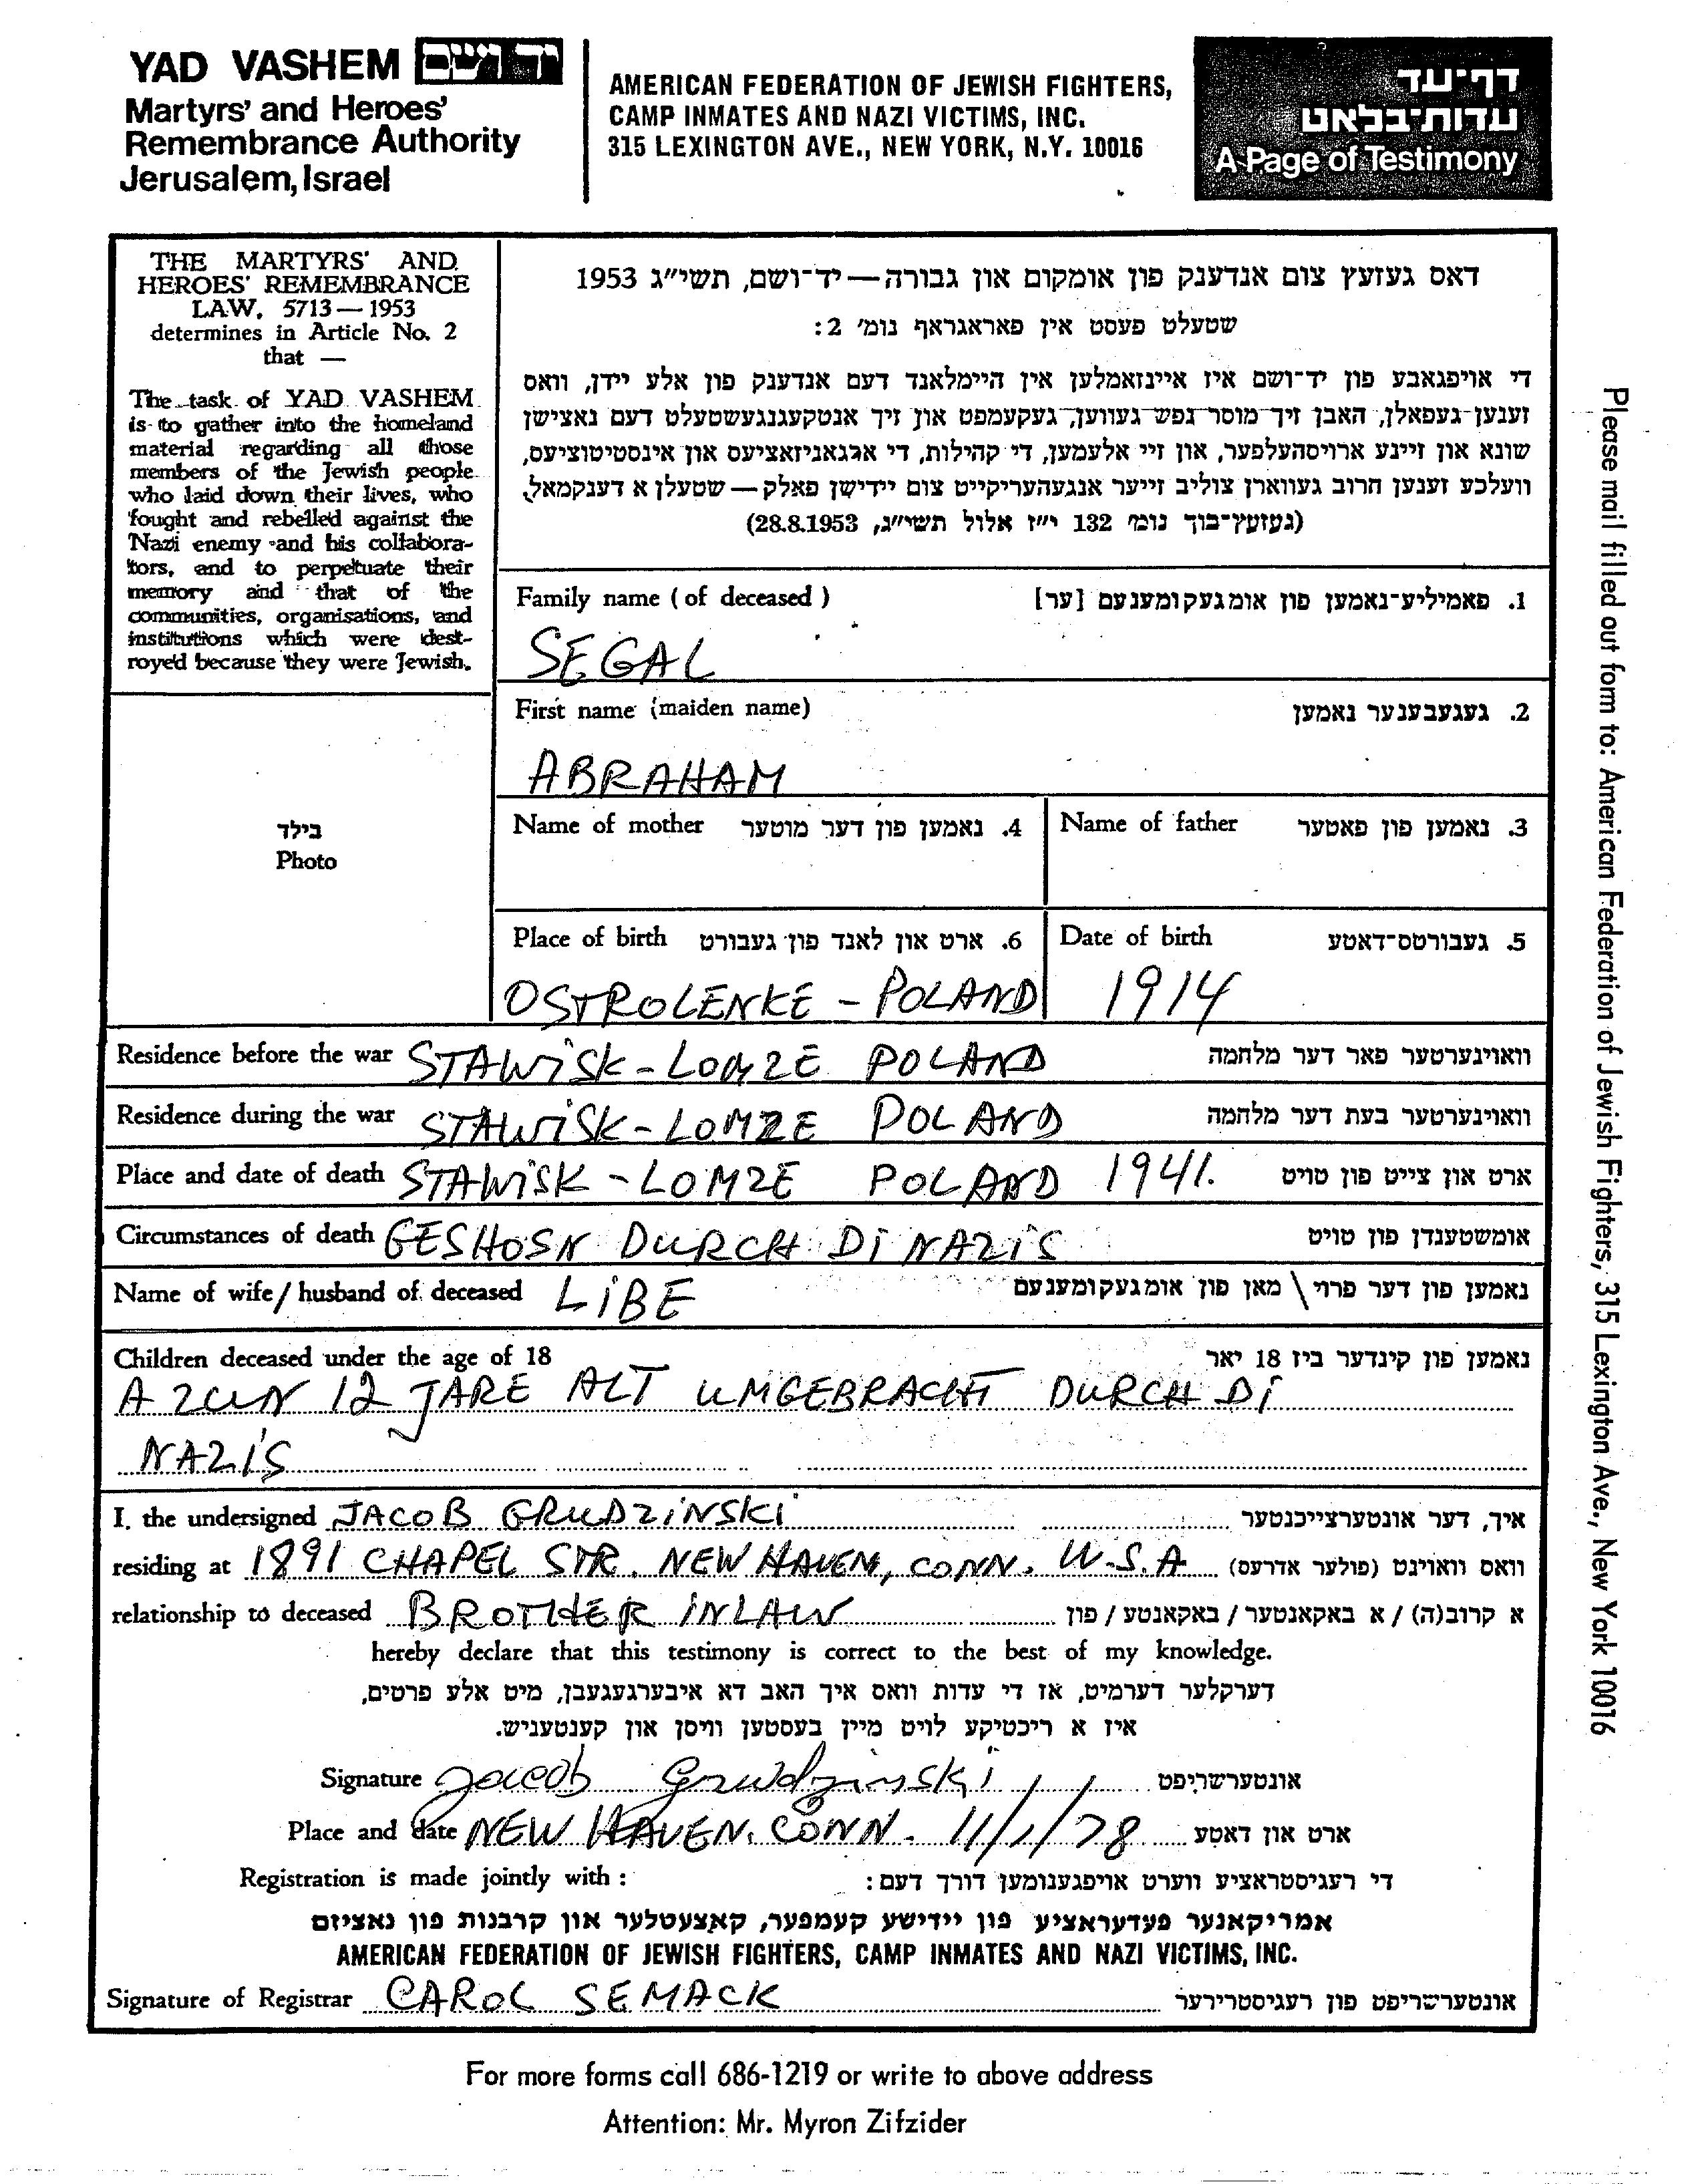 YAD VASHEM יד ושם
Martyrs' and Heroes'
Remembrance Authority
Jerusalem, Israel
AMERICAN FEDERATION OF JEWISH FIGHTERS,
CAMP INMATES AND NAZI VICTIMS, INC.
315 LEXINGTON AVE., NEW YORK, N.Y. 10016
דף־עד
עדות־בלאט
A Page of Testimony
THE MARTYRS' AND
HEROES' REMEMBRANCE
LAW, 5713 — 1953
determines in Article No. 2
that —
The task of YAD VASHEM
is to gather into the homeland
material regarding all those
members of the Jewish people
who laid down their lives, who
fought and rebelled against the
Nazi enemy and his collabora-
tors, and to perpetuate their
memory and that of the
communities, organisations, and
institutions which were dest-
royed because they were Jewish.
דאס געזעץ צום אנדענק פון אומקום און גבורה — יד־ושם, תשי״ג 1953
שטעלט פעסט אין פאראגראף נומ׳ 2:
די אויפגאבע פון יד־ושם איז איינזאמלען אין היימלאנד דעם אנדענק פון אלע יידן, וואס
זענען געפאלן, האבן זיך מוסר נפש געווען, געקעמפט און זיך אנטקעגנגעשטעלט דעם נאצישן
שונא און זיינע ארויסהעלפער, און זיי אלעמען, די קהילות, די ארגאניזאציעס און אינסטיטוציעס,
וועלכע זענען חרוב געווארן צוליב זייער אנגעהעריקייט צום יידישן פאלק — שטעלן א דענקמאל.
(געזעץ־בוך נומ׳ 132 י״ז אלול תשי״ג, 28.8.1953)
Family name (of deceased) 1. פאמיליע־נאמען פון אומגעקומענעם [ער]
SEGAL
First name (maiden name) 2. געגעבענער נאמען
ABRAHAM
בילד
Photo
Name of mother 4. נאמען פון דער מוטער Name of father 3. נאמען פון פאטער
Place of birth 6. ארט און לאנד פון געבורט Date of birth 5. געבורטס־דאטע
OSTROLENKE - POLAND 1914
Residence before the war STAWISK - LOMZE POLAND וואוינערטער פאר דער מלחמה
Residence during the war STAWISK - LOMZE POLAND וואוינערטער בעת דער מלחמה
Place and date of death STAWISK - LOMZE POLAND 1941. ארט און צייט פון טויט
Circumstances of death GESHOSN DURCH DI NAZIS אומשטענדן פון טויט
Name of wife / husband of deceased LIBE נאמען פון דער פרוי \ מאן פון אומגעקומענעם
Children deceased under the age of 18 נאמען פון קינדער ביז 18 יאר
A ZUN 12 JARE ALT UMGEBRACHT DURCH DI
NAZIS
I, the undersigned JACOB GRUDZINSKI איך, דער אונטערצייכנטער
residing at 1891 CHAPEL STR. NEW HAVEN, CONN. U.S.A וואס וואוינט (פולער אדרעס)
relationship to deceased BROTHER INLAW א קרוב(ה) / א באקאנטער / באקאנטע / פון
hereby declare that this testimony is correct to the best of my knowledge.
דערקלער דערמיט, אז די עדות וואס איך האב דא איבערגעגעבן, מיט אלע פרטים,
איז א ריכטיקע לויט מיין בעסטען וויסן און קענטעניש.
Signature Jacob Grudzinski אונטערשריפט
Place and date NEW HAVEN, CONN. 11/1/78 ארט און דאטע
Registration is made jointly with : די רעגיסטראציע ווערט אויפגענומען דורך דעם :
אמריקאנער פעדעראציע פון יידישע קעמפער, קאצעטלער און קרבנות פון נאציזם
AMERICAN FEDERATION OF JEWISH FIGHTERS, CAMP INMATES AND NAZI VICTIMS, INC.
Signature of Registrar CAROL SEMACK אונטערשריפט פון רעגיסטרירער
For more forms call 686-1219 or write to above address
Attention: Mr. Myron Zifzider
Please mail filled out form to: American Federation of Jewish Fighters, 315 Lexington Ave., New York 10016